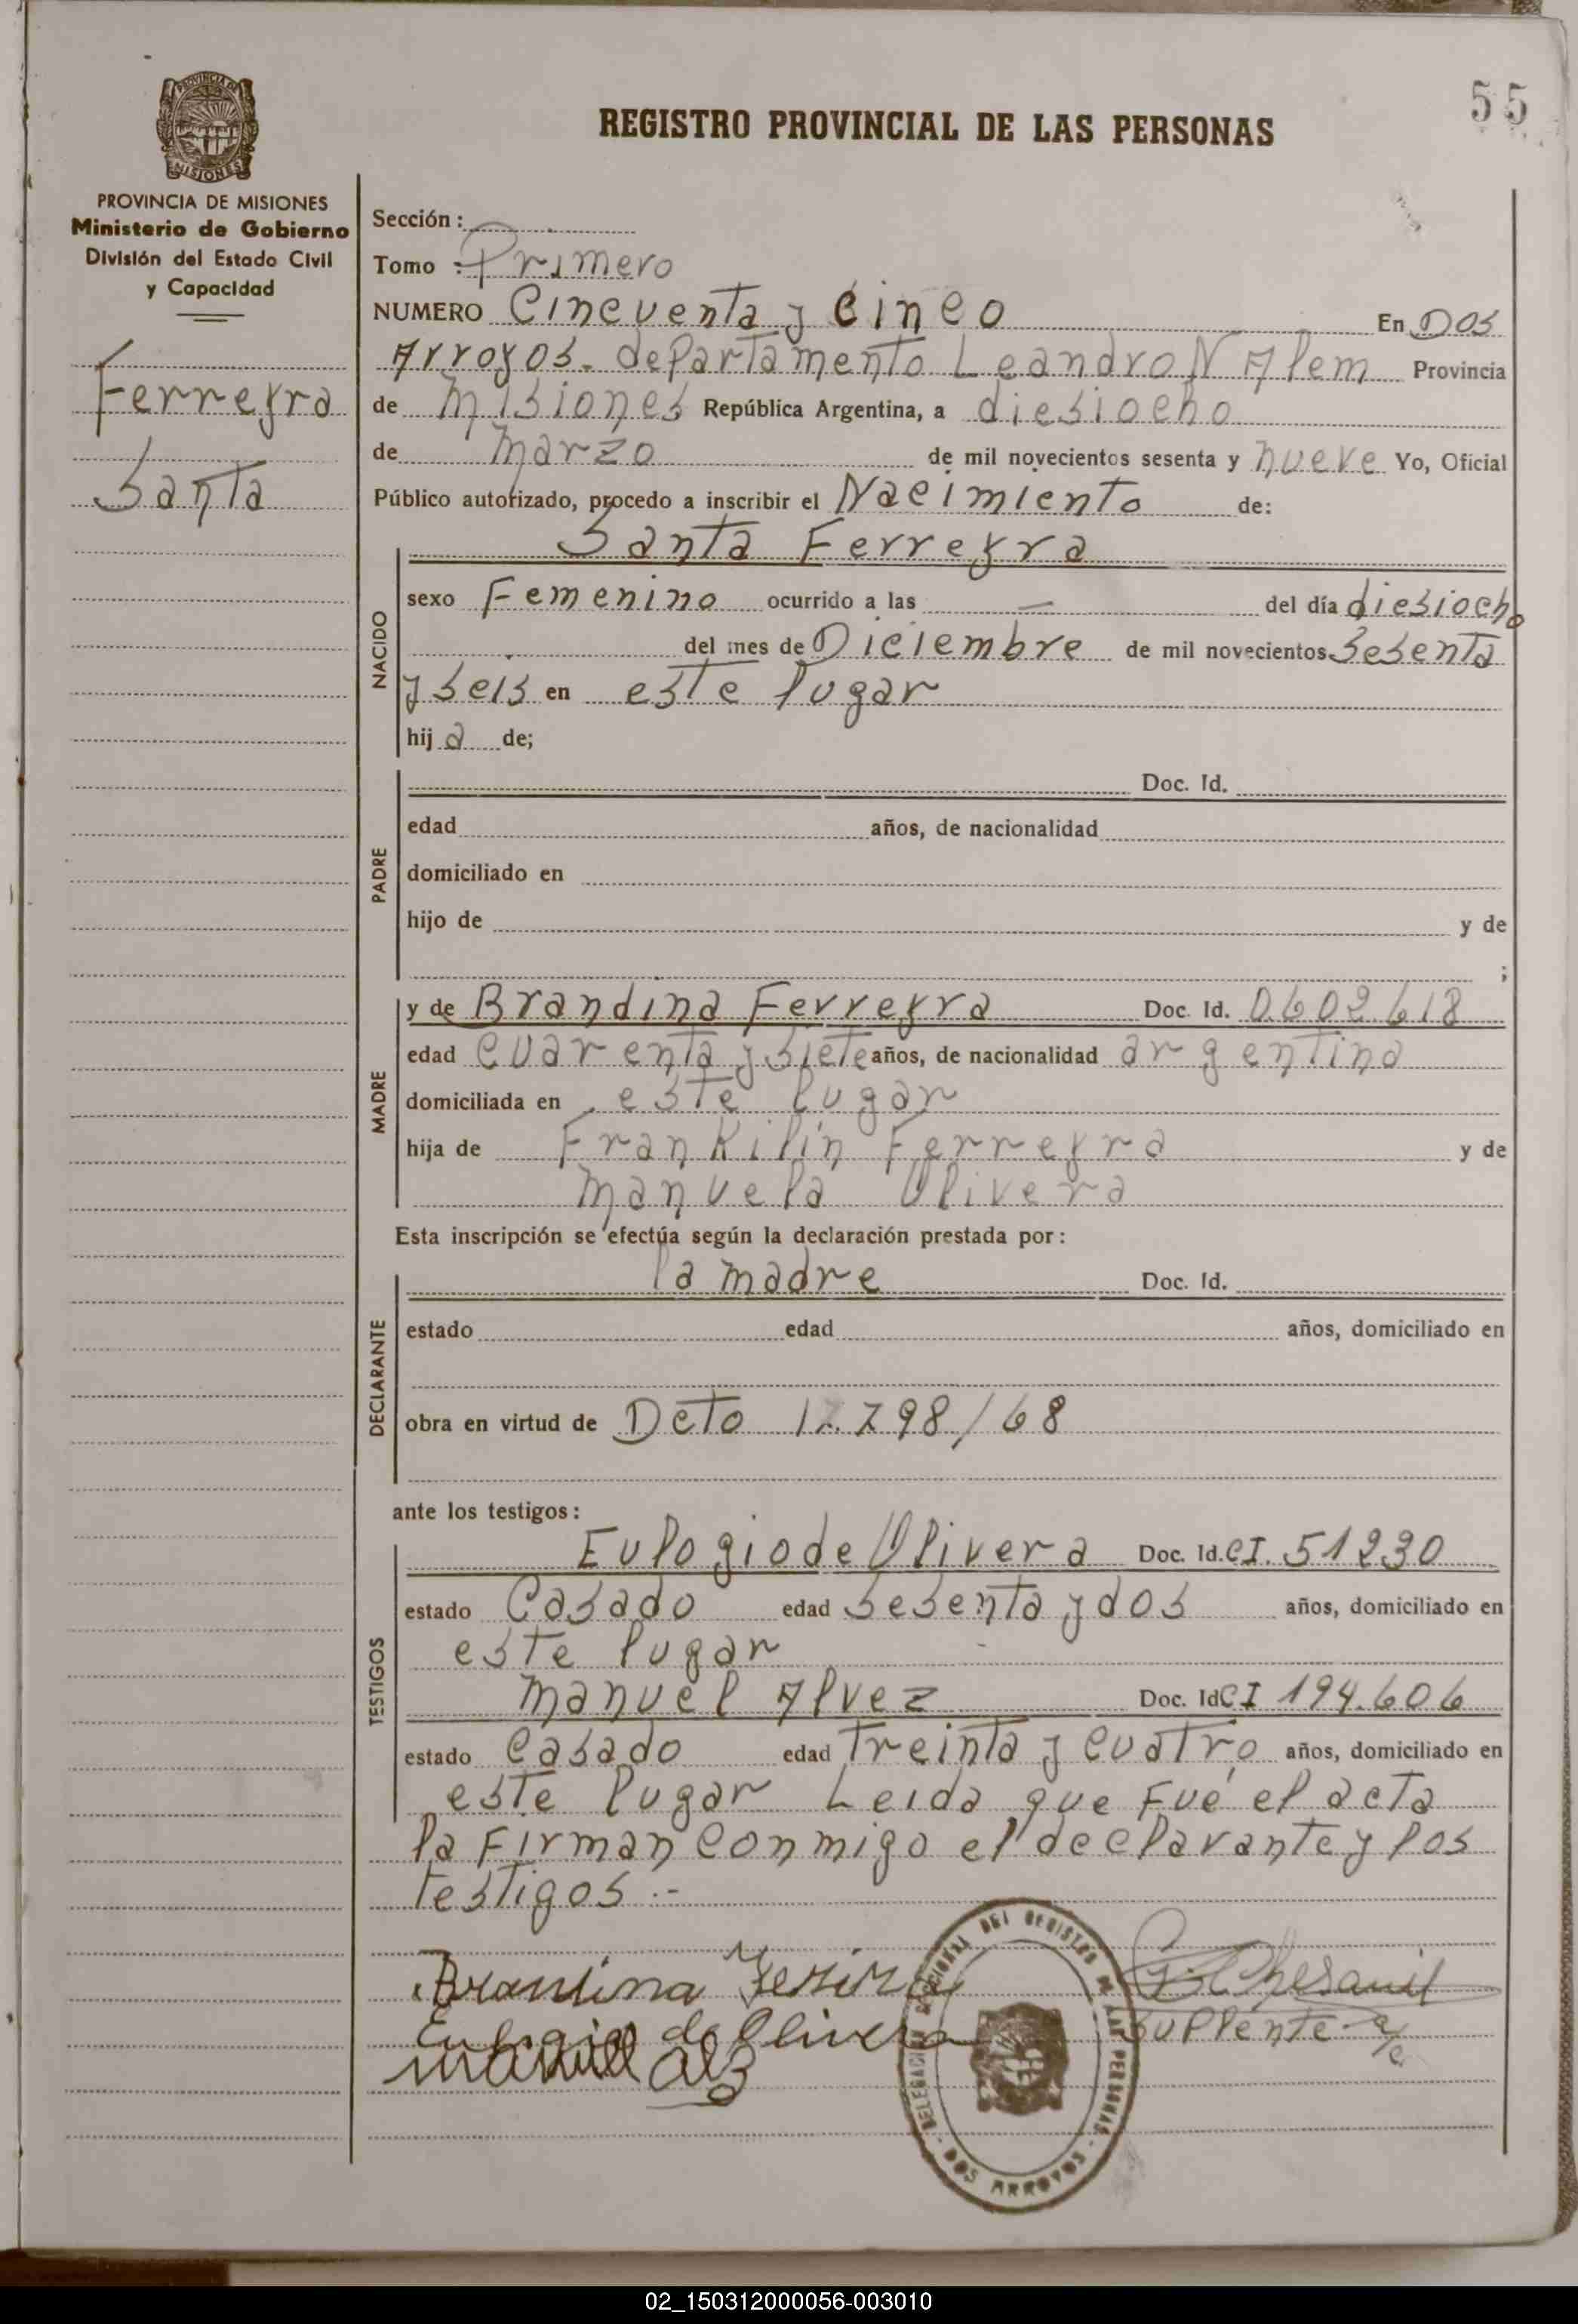 55
PROVINCIA DE
MISIONES
REGISTRO PROVINCIAL DE LAS PERSONAS
PROVINCIA DE MISIONES
Ministerio de Gobierno
División del Estado Civil
y Capacidad
Ferreyra
Santa
Sección :
Tomo : Primero
NUMERO Cincuenta y cinco En Dos
Arroyos. departamento Leandro N Alem Provincia
de Misiones República Argentina, a diesiocho
de Marzo de mil novecientos sesenta y nueve Yo, Oficial
Público autorizado, procedo a inscribir el Nacimiento de:
NACIDO
Santa Ferreyra
sexo Femenino ocurrido a las — del día diesiocho
del mes de Diciembre de mil novecientos Sesenta
y seis en este lugar
hij a de;
PADRE
Doc. Id.
edad años, de nacionalidad
domiciliado en
hijo de y de
;
MADRE
y de Brandina Ferreyra Doc. Id. 0.602.618
edad cuarenta y siete años, de nacionalidad argentina
domiciliada en este lugar
hija de Frankilin Ferreyra y de
Manuela Olivera
Esta inscripción se efectúa según la declaración prestada por :
DECLARANTE
la madre Doc. Id.
estado edad años, domiciliado en
obra en virtud de Deto 17.798/68
ante los testigos :
TESTIGOS
Eulogio de Olivera Doc. Id. CI. 51230
estado Casado edad sesenta y dos años, domiciliado en
este lugar
Manuel Alvez Doc. Id CI 194.606
estado Casado edad Treinta y cuatro años, domiciliado en
este lugar Leida que Fué el acta
la Firman conmigo el declarante y los
testigos .-
Brandina
Eulogio de Olivera
Suplente a/c
DELEGACION SECCIONAL DEL REGISTRO DE LAS PERSONAS - DOS ARROYOS -
02_150312000056-003010